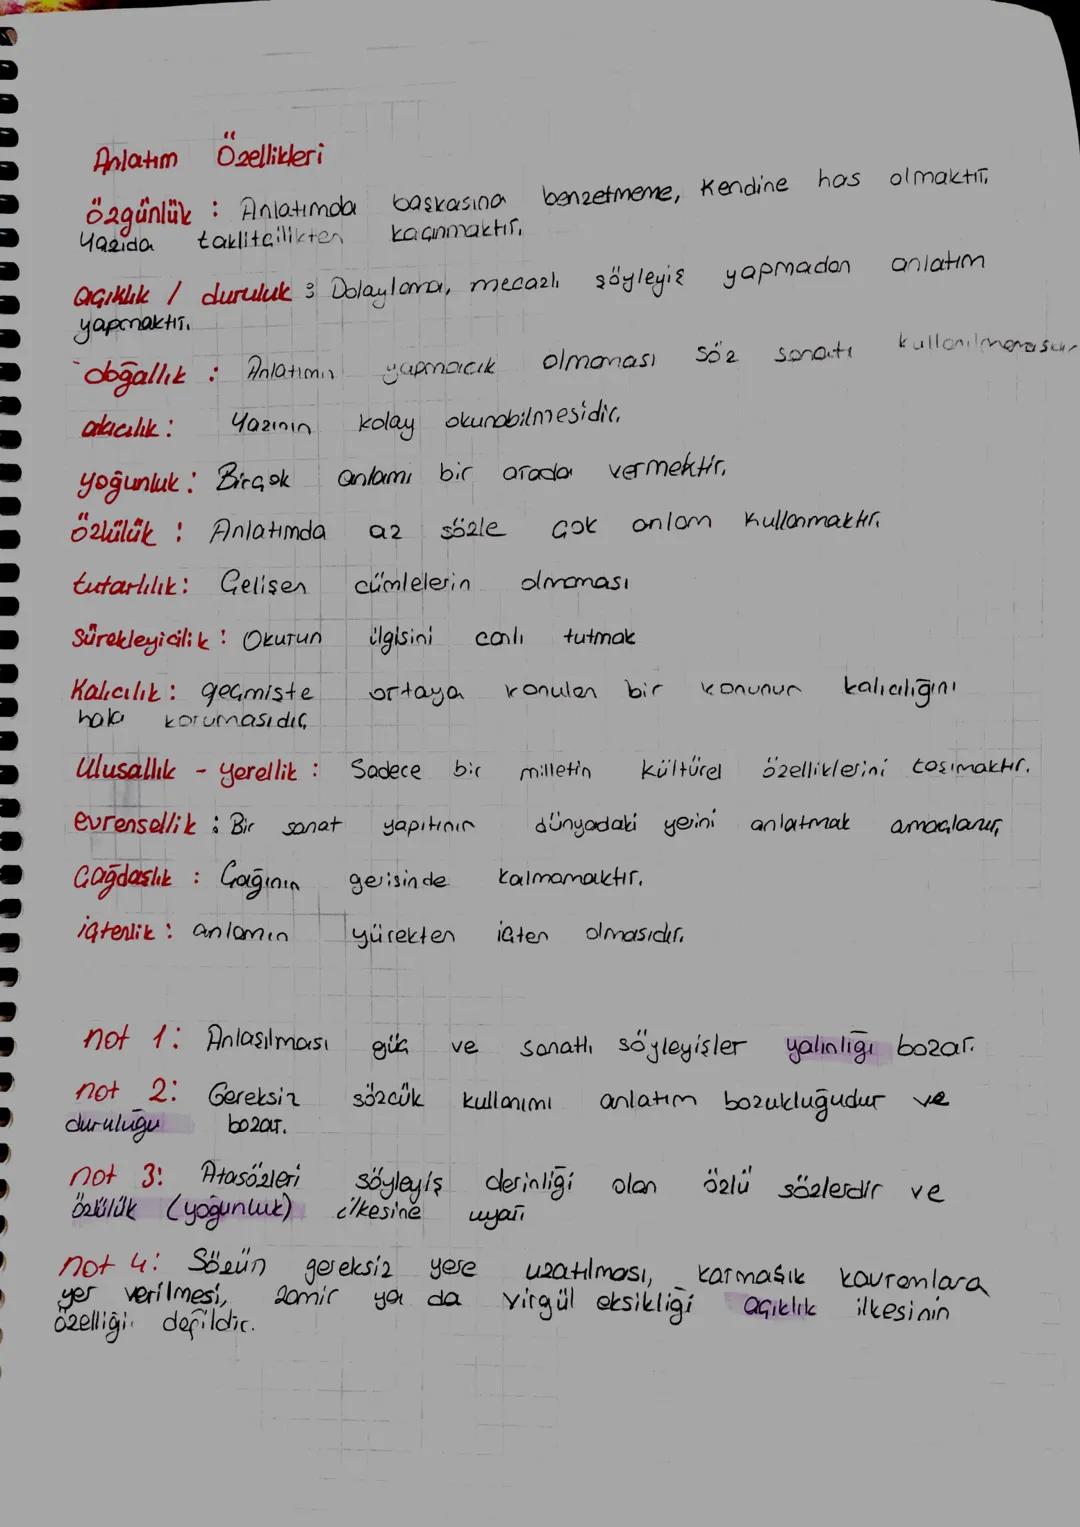 Anlatım Özellikleri
özgünlük : Anlatımda başkasına benzetmeme, Kendine has olmaktır.
Yazıda taklitçilikten kaçınmaktır.
açıklık / duruluk : Dolaylama, mecazlı söyleyiş yapmadan anlatım
yapmaktır.
doğallık : Anlatımın yapmacık olmaması söz sanatı kullanılmamasıdır
akıcılık : Yazının kolay okunabilmesidir.
yoğunluk : Birçok anlamı bir arada vermektir.
özlülük : Anlatımda az sözle çok anlam kullanmaktır.
tutarlılık : Gelişen cümlelerin olmaması
Sürekleyicilik : Okurun ilgisini canlı tutmak
Kalıcılık : geçmişte ortaya konulan bir konunun kalıcılığını
hala korumasıdır.
Ulusallık - yerellik : Sadece bir milletin kültürel özelliklerini taşımaktır.
evrensellik : Bir sanat yapıtının dünyadaki yerini anlatmak amaçlanır.
Çağdaşlık : Çağının gerisinde kalmamaktır.
içtenlik : anlamın yürekten içten olmasıdır.
not 1: Anlaşılması güç ve sanatlı söyleyişler yalınlığı bozar.
not 2: Gereksiz sözcük kullanımı anlatım bozukluğudur ve
duruluğu bozar.
not 3: Atasözleri söyleyiş derinliği olan özlü sözlerdir ve
özlülük (yoğunluk) ilkesine uyar
not 4: Sözün gereksiz yere uzatılması, karmaşık kavramlara
yer verilmesi, zamir ya da virgül eksikliği açıklık ilkesinin
özelliği değildir.